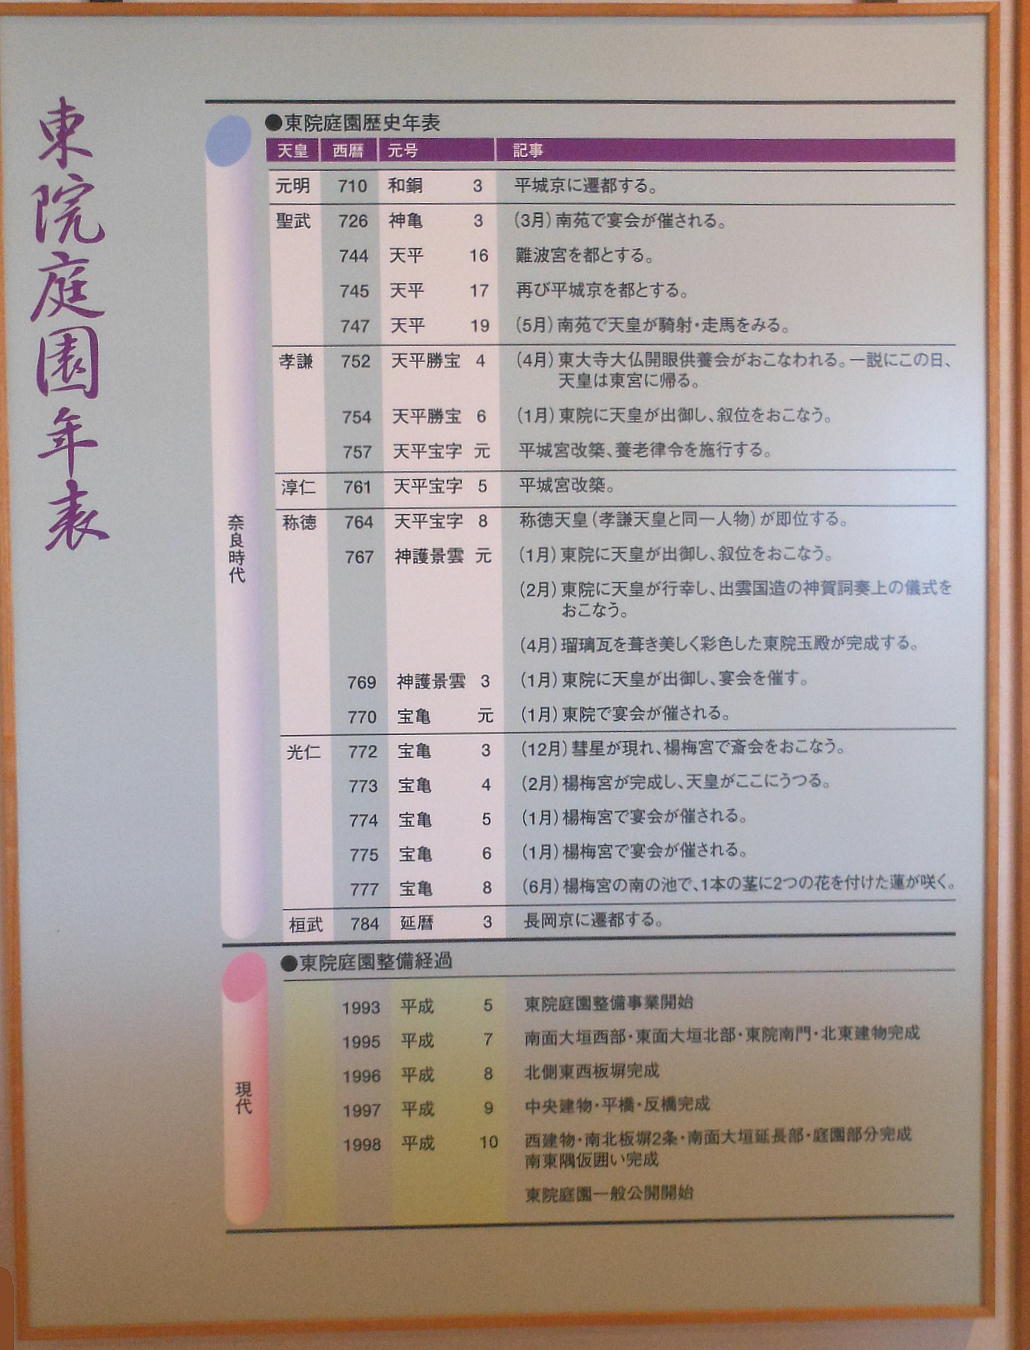 東院庭園年表
●東院庭園歴史年表
天皇 西暦 元号 記事
奈良時代
元明 710 和銅 3 平城京に遷都する。
聖武 726 神亀 3 (3月)南苑で宴会が催される。
744 天平 16 難波宮を都とする。
745 天平 17 再び平城京を都とする。
747 天平 19 (5月)南苑で天皇が騎射・走馬をみる。
孝謙 752 天平勝宝 4 (4月)東大寺大仏開眼供養会がおこなわれる。一説にこの日、
天皇は東宮に帰る。
754 天平勝宝 6 (1月)東院に天皇が出御し、叙位をおこなう。
757 天平宝字 元 平城宮改築、養老律令を施行する。
淳仁 761 天平宝字 5 平城宮改築。
称徳 764 天平宝字 8 称徳天皇(孝謙天皇と同一人物)が即位する。
767 神護景雲 元 (1月)東院に天皇が出御し、叙位をおこなう。
(2月)東院に天皇が行幸し、出雲国造の神賀詞奏上の儀式を
おこなう。
(4月)瑠璃瓦を葺き美しく彩色した東院玉殿が完成する。
769 神護景雲 3 (1月)東院に天皇が出御し、宴会を催す。
770 宝亀 元 (1月)東院で宴会が催される。
光仁 772 宝亀 3 (12月)彗星が現れ、楊梅宮で斎会をおこなう。
773 宝亀 4 (2月)楊梅宮が完成し、天皇がここにうつる。
774 宝亀 5 (1月)楊梅宮で宴会が催される。
775 宝亀 6 (1月)楊梅宮で宴会が催される。
777 宝亀 8 (6月)楊梅宮の南の池で、1本の茎に2つの花を付けた蓮が咲く。
桓武 784 延暦 3 長岡京に遷都する。
●東院庭園整備経過
現代
1993 平成 5 東院庭園整備事業開始
1995 平成 7 南面大垣西部・東面大垣北部・東院南門・北東建物完成
1996 平成 8 北側東西板塀完成
1997 平成 9 中央建物・平橋・反橋完成
1998 平成 10 西建物・南北板塀2条・南面大垣延長部・庭園部分完成
南東隅仮囲い完成
東院庭園一般公開開始